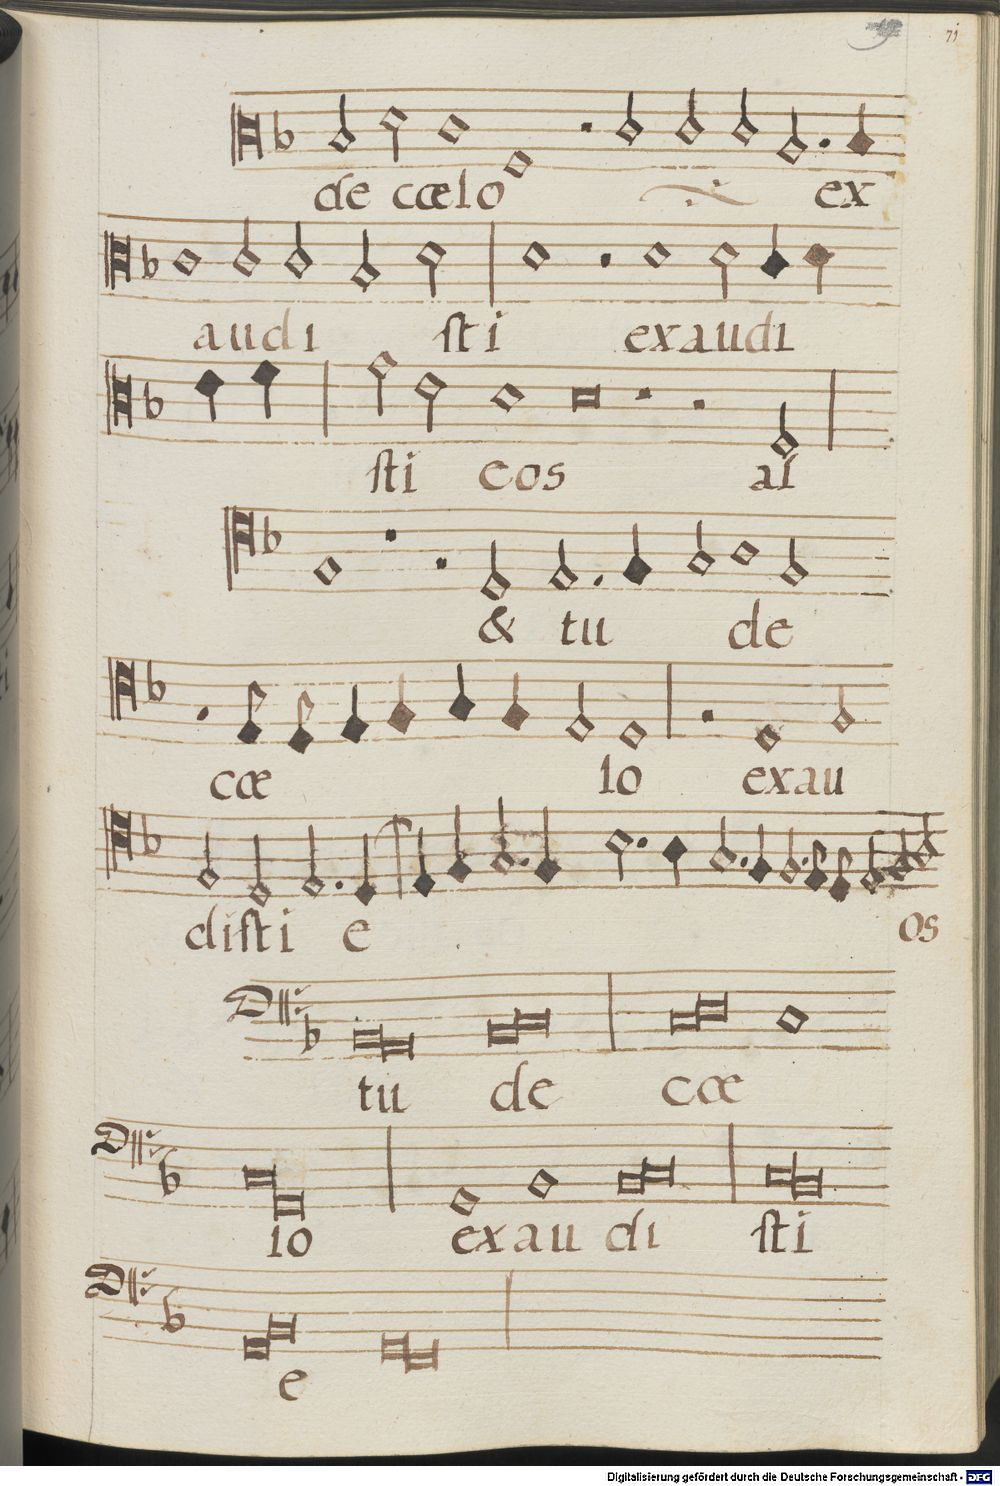 71
de cœlo ex
audi sti exaudi
sti eos ai
& tu de
cœ lo exau
disti e os
tu de cœ
lo exau di sti
e
Digitalisierung gefördert durch die Deutsche Forschungsgemeinschaft - DFG